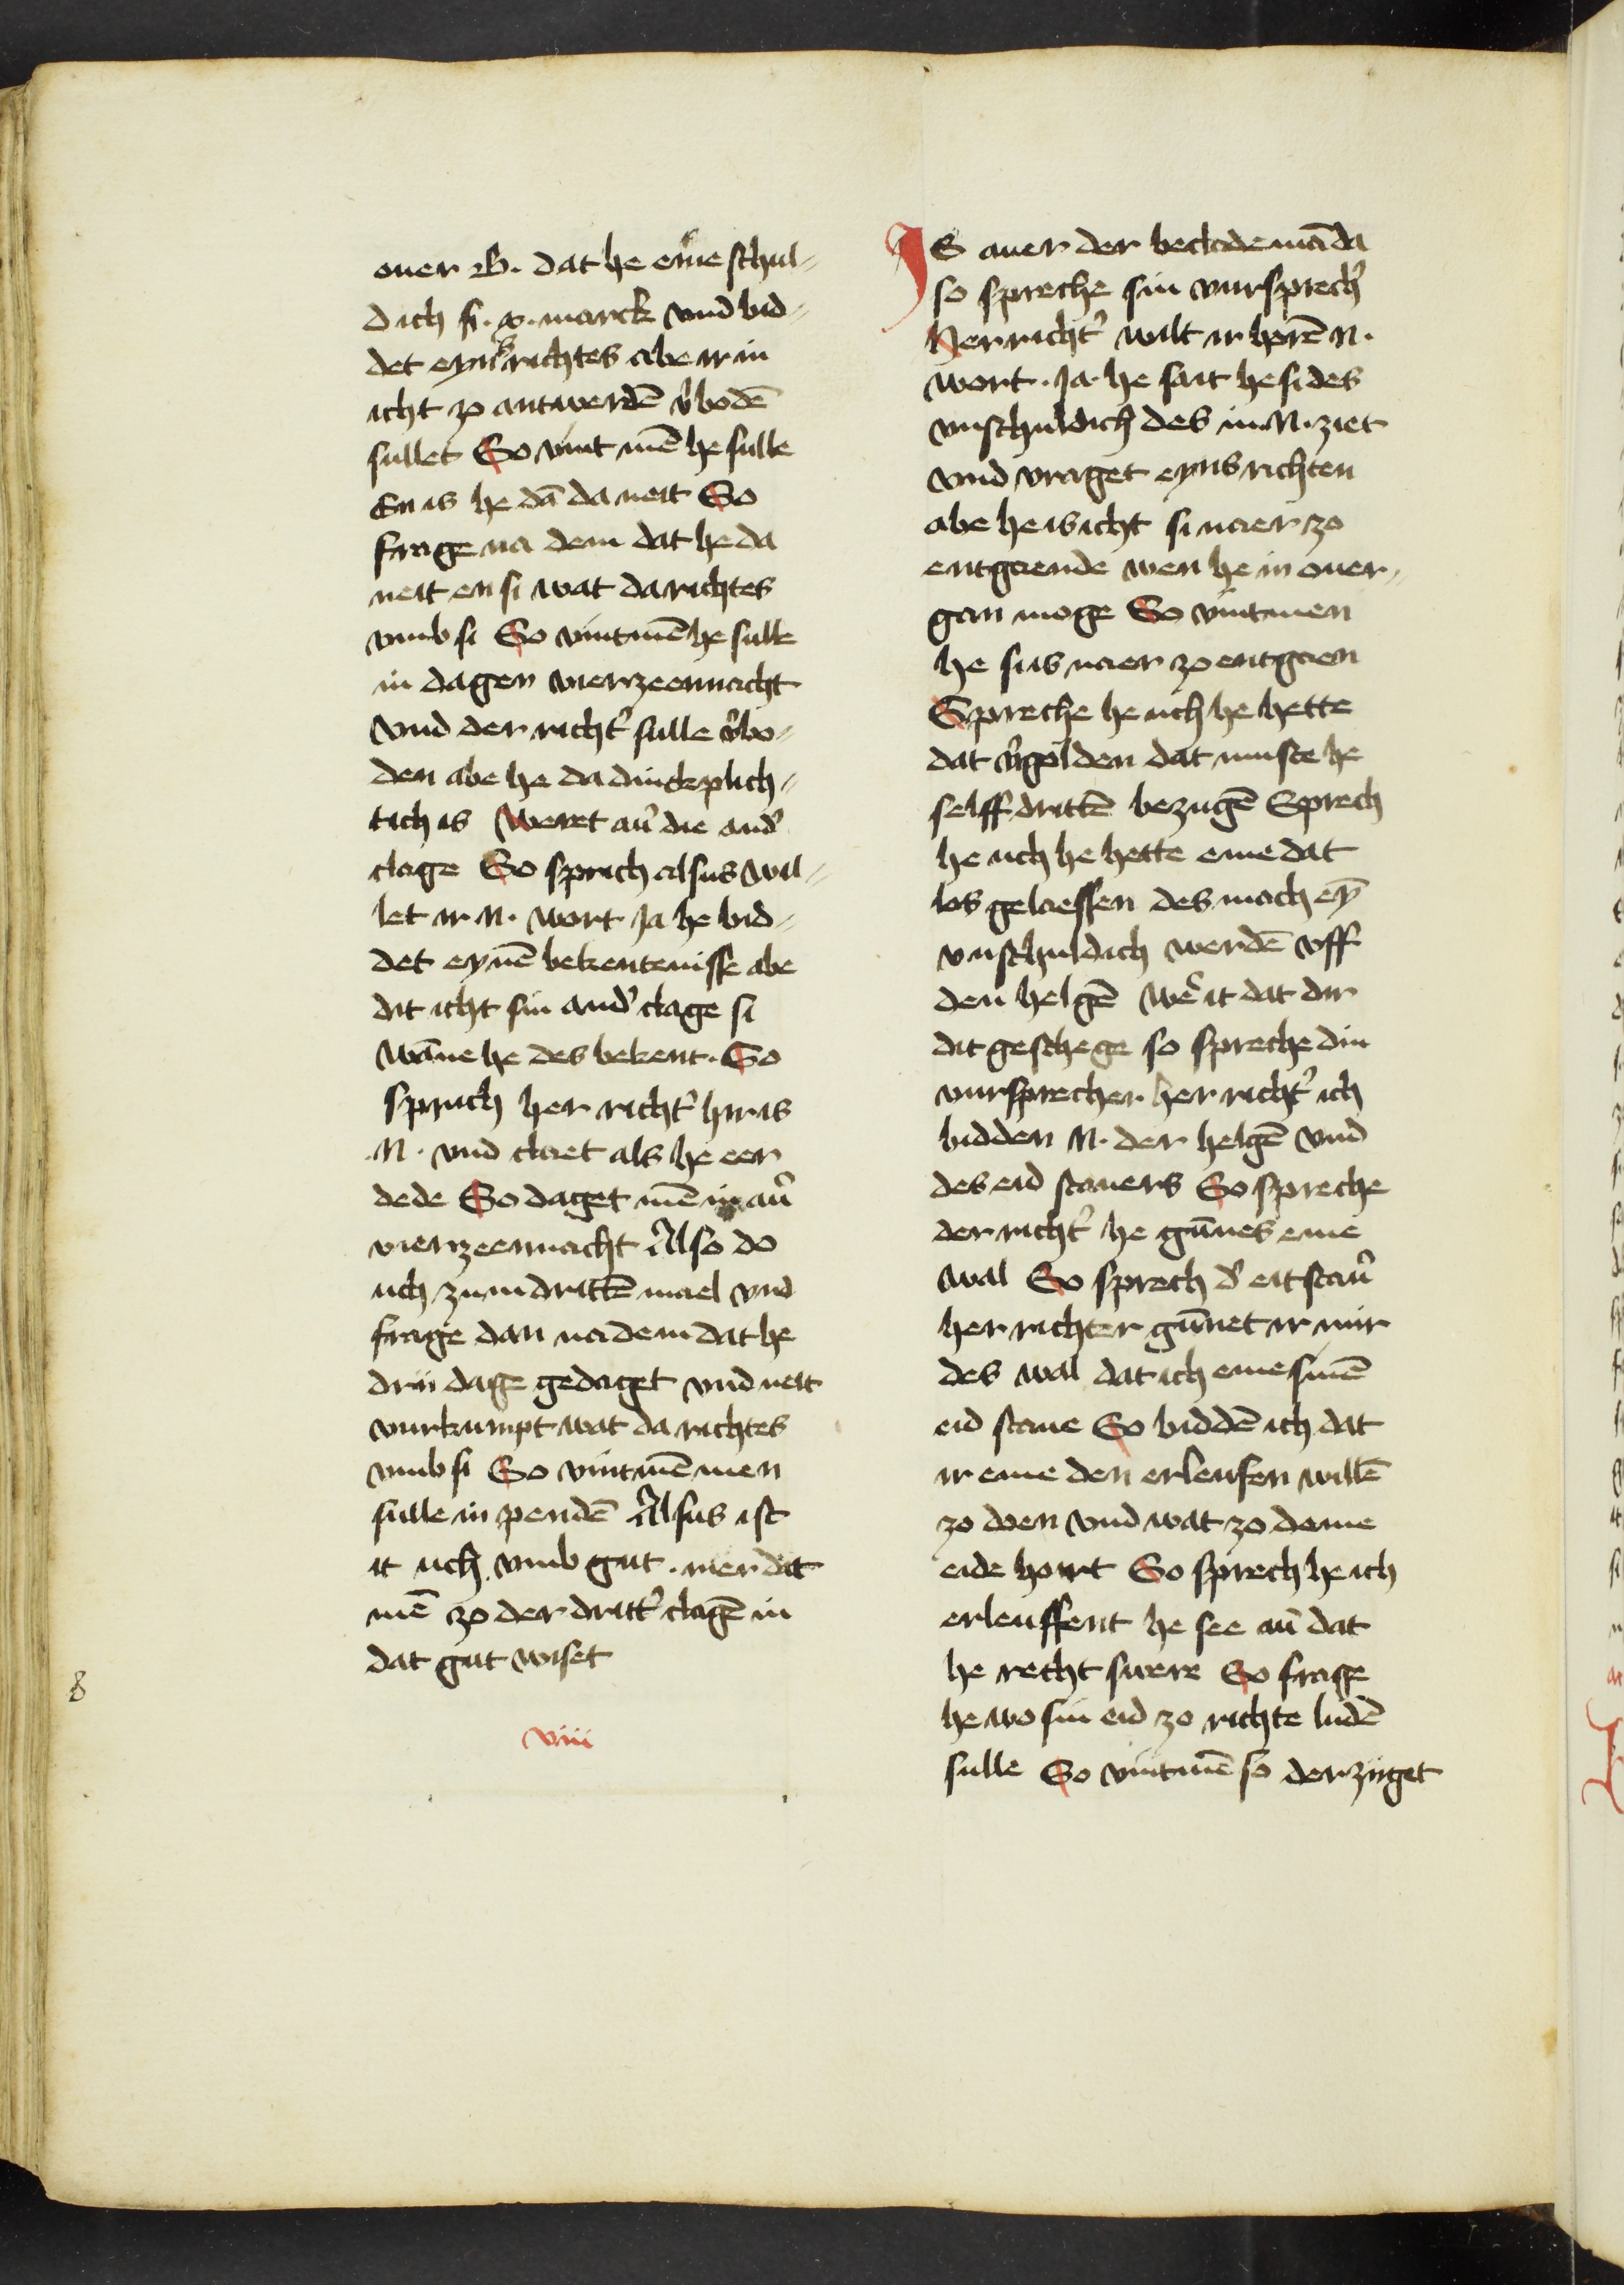 ouer B. dat he eme schul-
dich si .x. marck vnd bid-
det eyns richtes abe ir in
icht zo antwerdē v̓bodē
sullet So vint mē he sulle
En is he dā da neit So
frage na dem dat he da
neit en si wat da richtes
vmb si So vintmē he sulle
in dagen vierzeennacht
vnd der richt̓ sulle v̓bo-
den abe he da dinckplich-
tich is Weret au̓ die and̓
clage So sprich alsus wil-
let ir N. wort Ja he bid-
det eynē bekentenisse abe
dit icht sin and̓ clage si
wāne he des bekent. So
sprich her richt̓ hir is
.N. vnd claet als he eer
dede So daget mē in au̓
vierzeennacht Also do
uch zum drittē mael vnd
frage dan na dem dat he
drii dage gedaget vnd neit
vurkumpt wat da richtes
vmb si So vintmē men
sulle in pendē Alsus ist
it uch vmb gut. mer dat
mē zo der dritt̓ clagē in
dat gut wiset
8
viii
JS auer der beclade mā da
so spreche sin vursprech̓
Her richt̓ wilt ir horē N.
wort. Ja. he sait he si des
vnschuldich des in .N. ziet
vnd vraget eyns richten
abe he is icht si naer zo
entgaende wen he in ouer-
gan moge So vintmen
he siis naer zo entgaen
Spreche he uch he hette
dat v̓golden dat muste he
selff drittē bezugē Sprech
he uch he hette eme dat
los gelaessen des mach eȳ
vnschuldich werdē vff
den helgē We̓ it dat dir
dit geschege so spreche din
vursprecher her richt̓ ich
bidden N. der helgē vnd
des eid stauers So spreche
der richt̓ he gūnes eme
wal So sprech d̓ eitstau̓
her richter gūnet ir mir
des wal dat ich eme sinē
eid staue So biddē ich dat
ir eme den erleufen willē
zo doen vnd wat zo deme
eide hoirt So sprech he ich
erleuffent he see an̄ dat
he recht swere So frage
he wo sin eid zo richte ludē
sulle So vintmē so der zuget